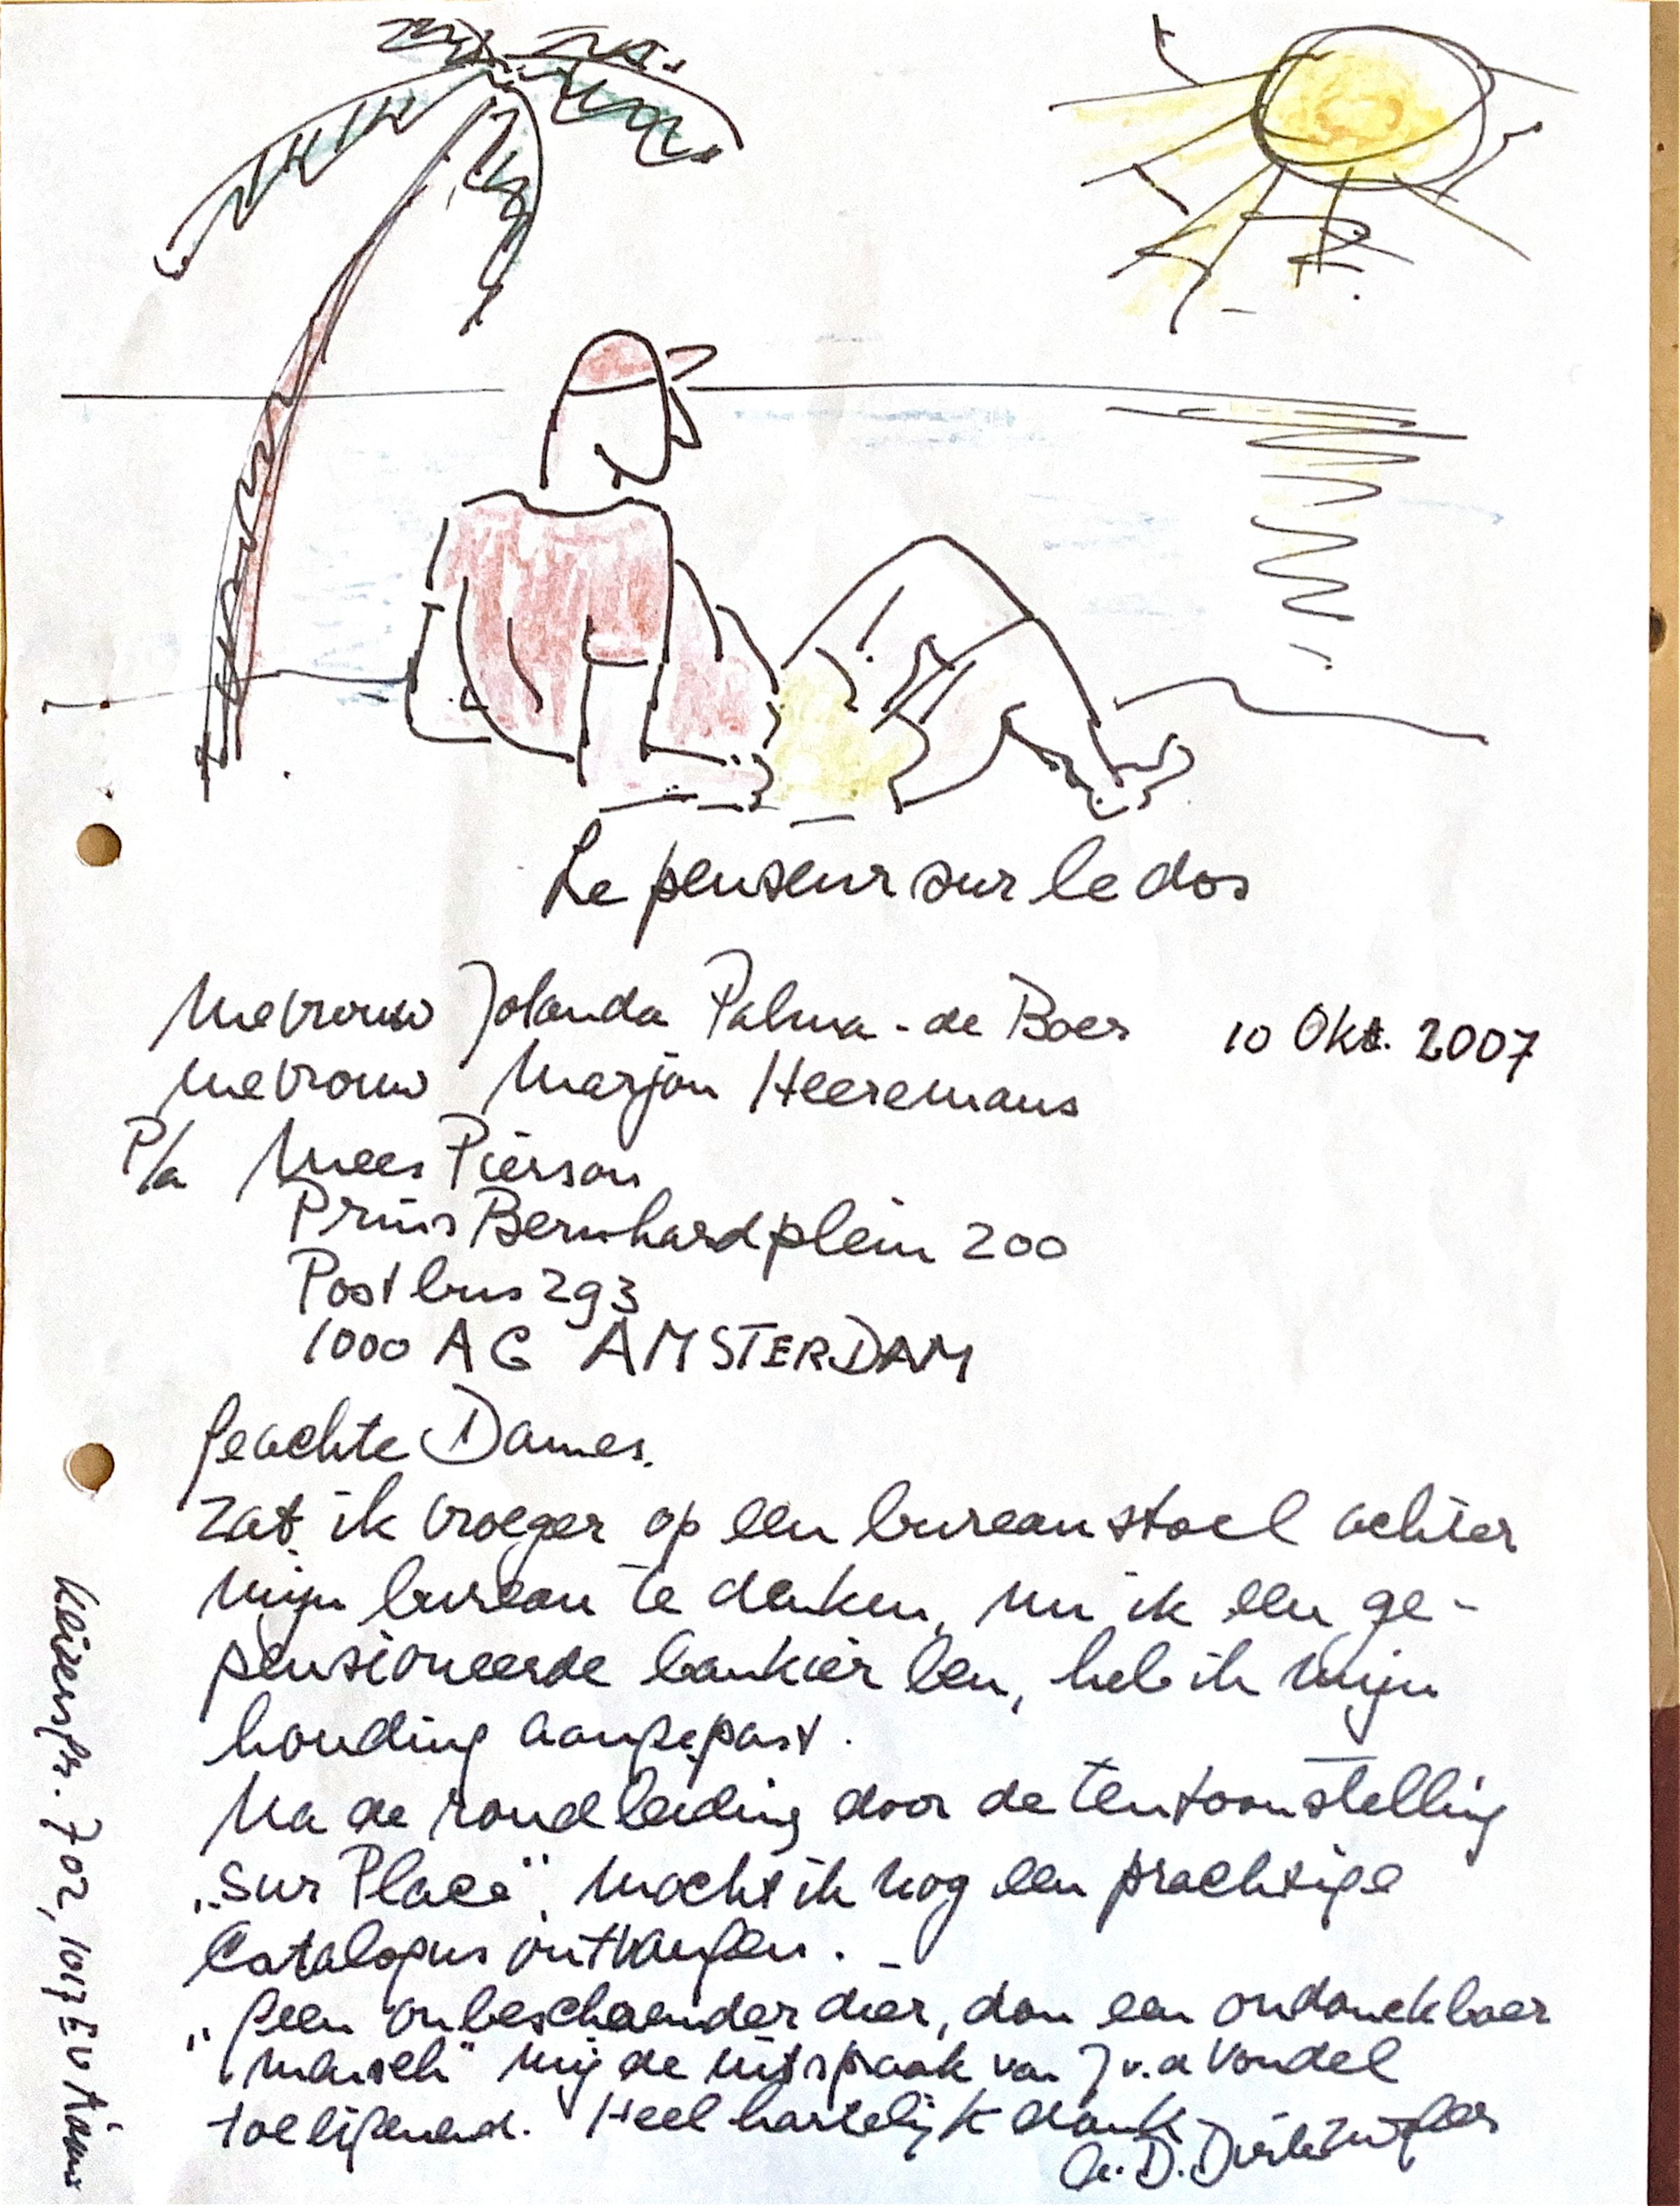 Le penseur sur le dos
Mevrouw Jolanda Palma - de Boer 10 Okt. 2007
Mevrouw Marjan Heeremans
P/a Mees Pierson
Prins Bernhardplein 200
Postbus 293
1000 AG AMSTERDAM
Geachte Dames.
Zat ik vroeger op een bureaustoel achter
mijn bureau te denken, nu ik een ge-
pensioneerde bankier ben, heb ik mijn
houding aangepast.
Na de rondleiding door de tentoonstelling
„Sur Place", mocht ik nog een prachtige
Catalogus ontvangen.
„Geen onbeschaemder dier, dan een ondanckbaer
mensch" mij de uitspraak van J v.d Vondel
toeëigenend. Heel hartelijk dank
Keizersgr. 702, 1017 EV A'dam